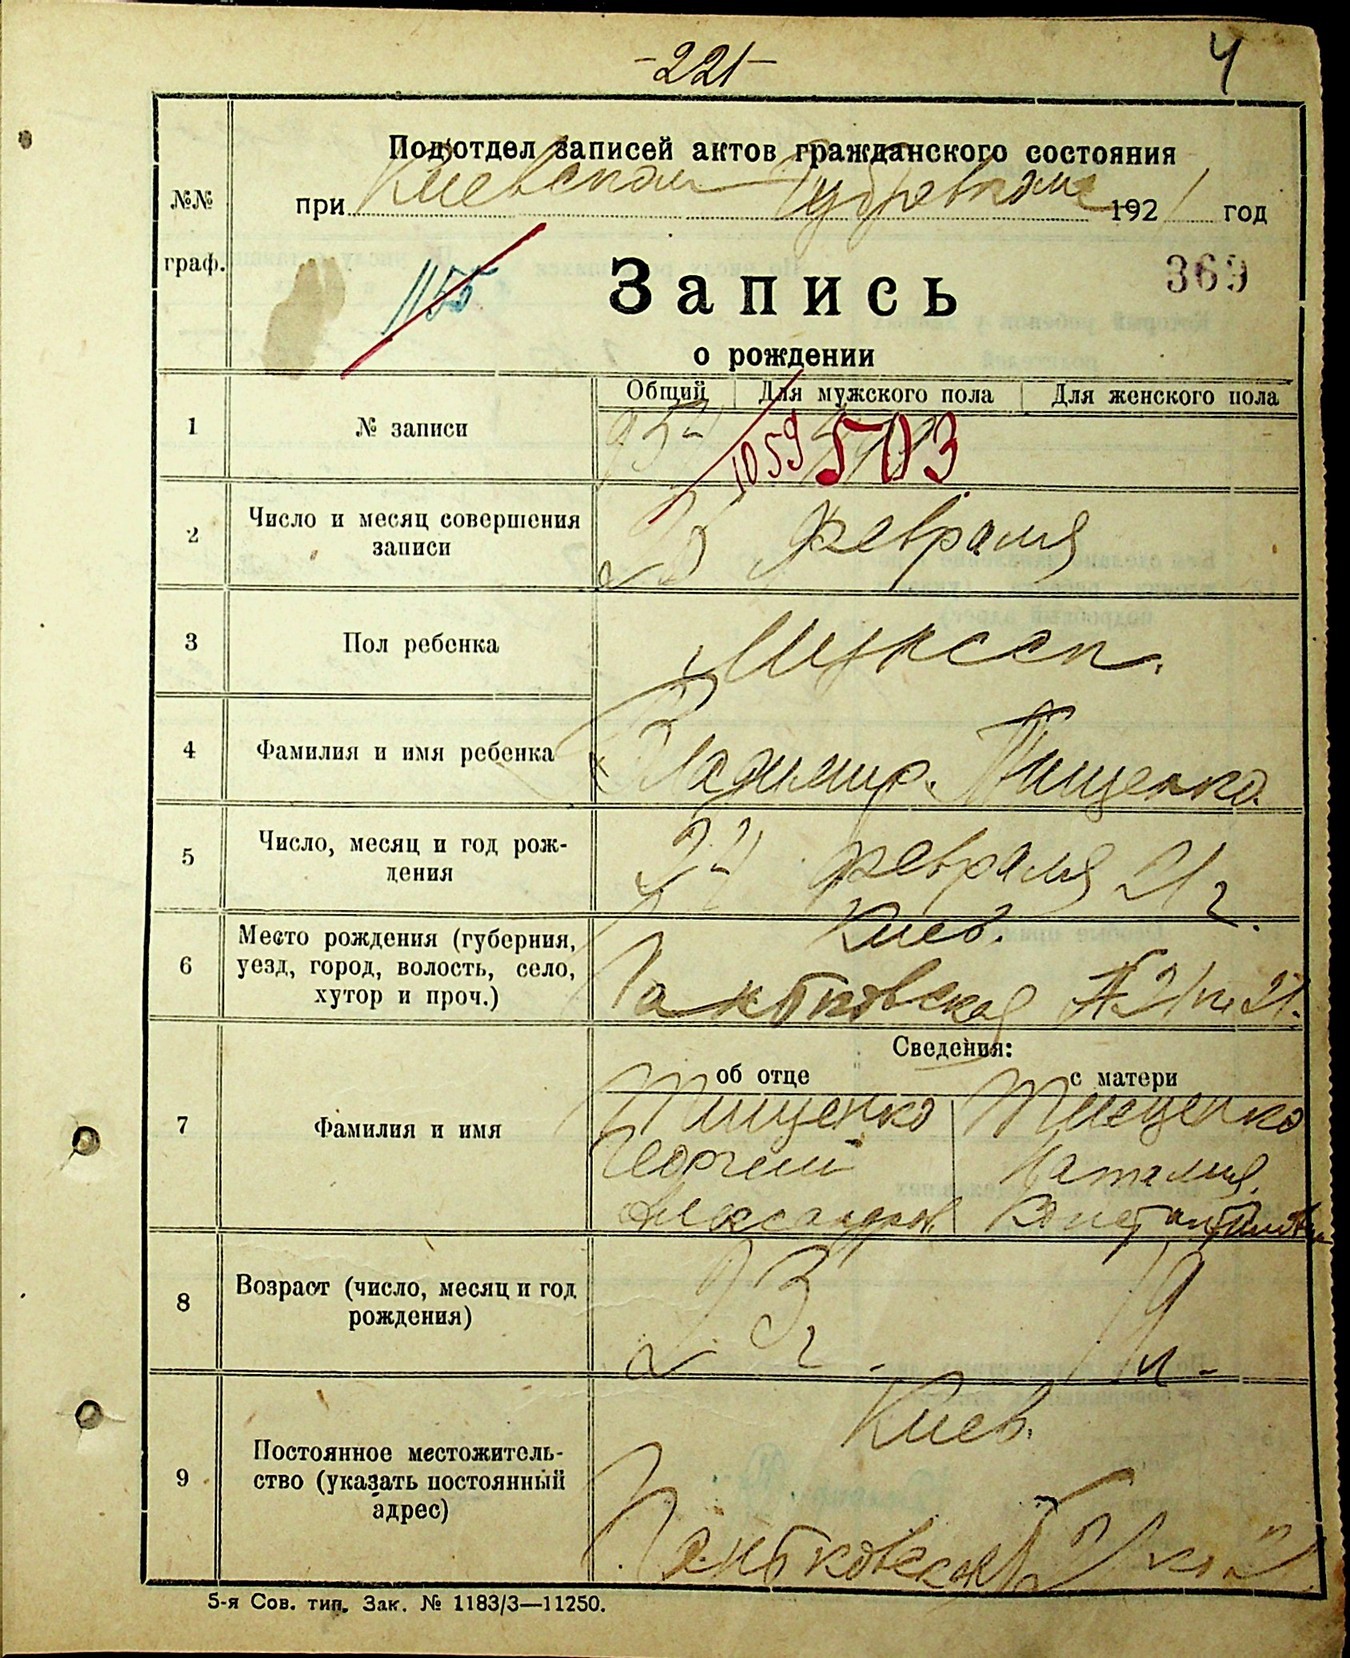 -221-
4
Подотдел записей актов гражданского состояния
при Киевском Губревкоме 1921 год
№№ граф.
1155
Запись
369
о рождении
Общий Для мужского пола Для женского пола
1 № записи
1059 503
2 Число и месяц совершения записи
25 февраля
3 Пол ребенка
Мужеск.
4 Фамилия и имя ребенка
Владимир Тищенко
5 Число, месяц и год рождения
24 февраля 21 г.
6 Место рождения (губерния, уезд, город, волость, село, хутор и проч.)
Киев.
Паньковская
Сведения:
об отце с матери
7 Фамилия и имя
Тищенко Тищенко
Георгий Наталия
Александров Константинов
8 Возраст (число, месяц и год рождения)
23 19
г. л.
9 Постоянное местожительство (указать постоянный адрес)
Киев.
Паньковская
5-я Сов. тип. Зак. № 1183/3—11250.